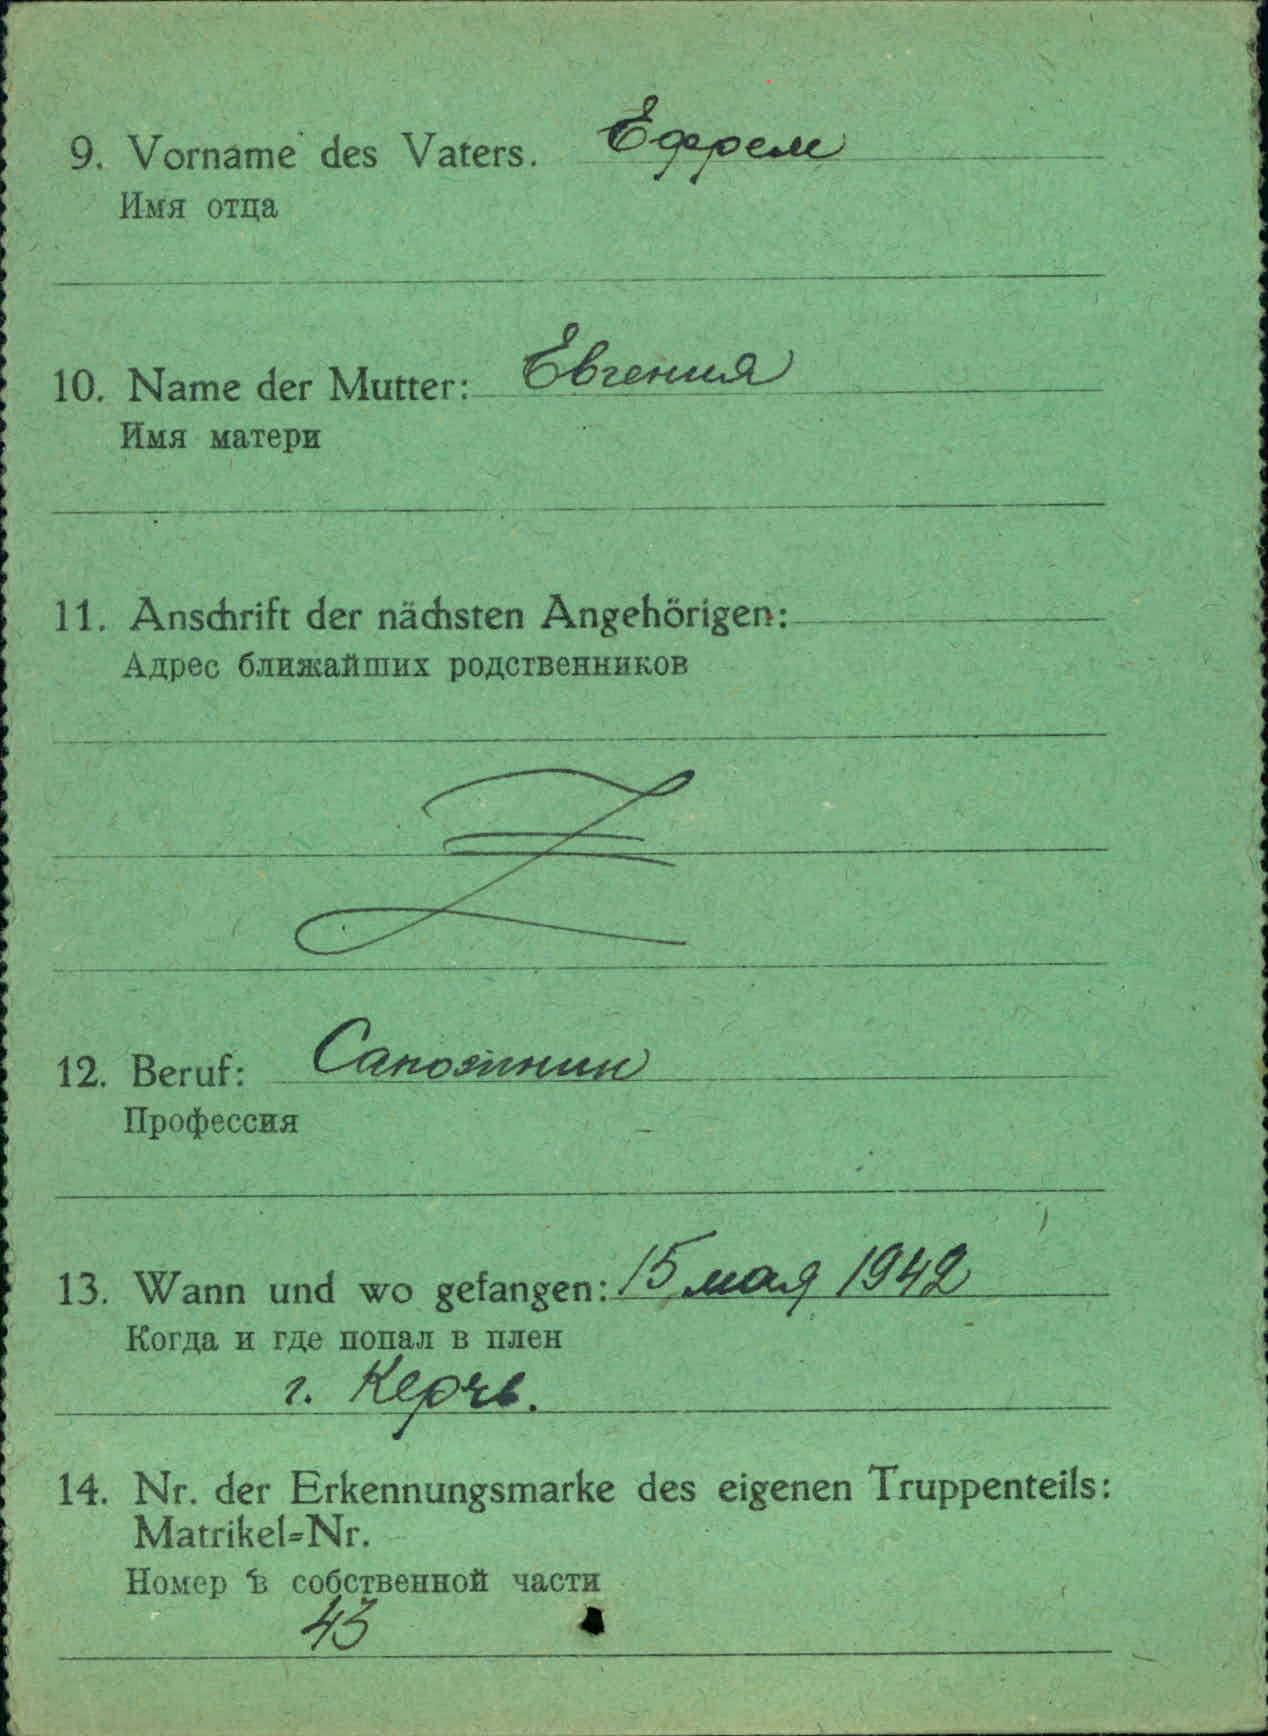 9. Vorname des Vaters. Ефрем
Имя отца
10. Name der Mutter: Евгения
Имя матери
11. Anschrift der nächsten Angehörigen:
Адрес ближайших родственников
Z
12. Beruf: Сапожник
Профессия
13. Wann und wo gefangen: 15 мая 1942
Когда и где попал в плен
г. Керчь.
14. Nr. der Erkennungsmarke des eigenen Truppenteils:
Matrikel=Nr.
Номер в собственной части
43